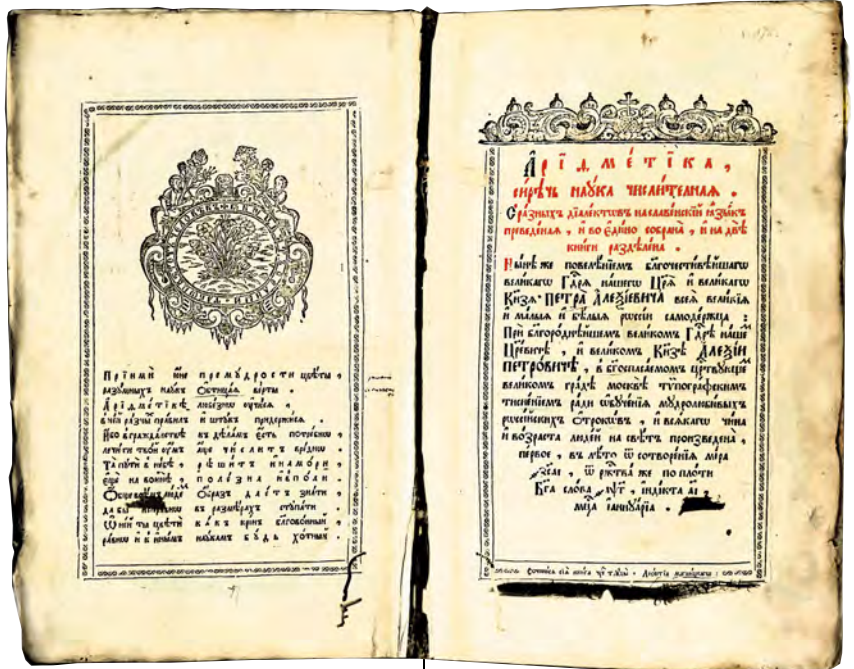 Прїими юне премудрости цвѣты ,
разумныхъ наукъ ѡбтицая верты .
Арїѳметїкѣ любезнѡ учися ,
в ней разныхъ правилъ и штукъ придержися .
Ибо в гражданствѣ къ дѣламъ есть потребнѡ ,
лечити твой оумъ аще числитъ вреднѡ
Та пути в небѣ , рѣшитъ и на мори ,
еще на войнѣ , полезна и в поли .
Обще всѣмъ людемъ образъ даетъ знати ,
дабы въ размѣрахъ ступати .
ѡ ней ты цвѣти какъ кринъ благовонный ,
равнѡ и в инымъ наукамъ будь хотный .
Арїѳметїка ,
сирѣчь наука числителная .
С разныхъ дїалектѡвъ на славенскїй языкъ
преведеная , и во едино собрана , и на двѣ
книги раздѣлена .
Нынѣ же повелѣнїемъ бл҃гочестивѣйшагѡ
великагѡ Гд҃ря нашегѡ Цр҃я и великагѡ
Кн҃зя ПЕТРА АЛЕѮЇЕВИЧА всея великїя
и малыя и бѣлыя рѡссїи самодержца :
При бл҃городнѣйшемъ великомъ Гд҃рѣ нашемъ
Цр҃евичѣ , и великомъ Кн҃зѣ АЛЕѮЇИ
ПЕТРОВИЧѢ , в бг҃оспасаемомъ цр҃твующемъ
великомъ градѣ москвѣ тѵпографскимъ
тисненїемъ ради ѡбученїя мудролюбивыхъ
рѡссїйскихъ ѻтрокѡвъ , и всякагѡ чина
и возраста людей на свѣтъ произведена ,
первое , въ лѣто ѿ сотворенїя мїра
҂зсаі , ѿ рж҃тва же по плоти
Бг҃а слова ҂аѱг , індїкта аі ,
мц҃а іаннуарїа .
Сочинися сїя книга чрез труды Леонтїа магницкагѡ :